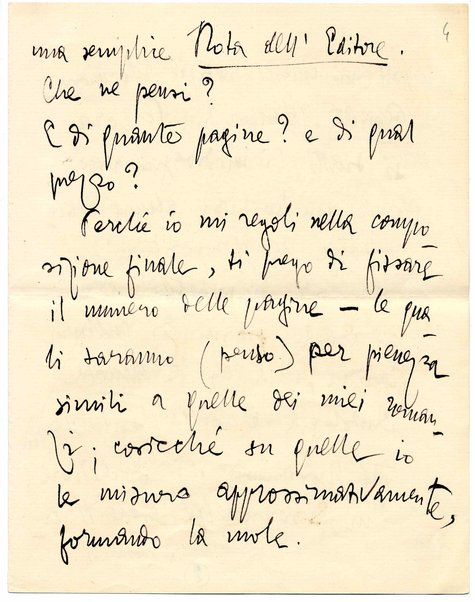 4
una semplice Nota dell' Editore.
Che ne pensi?
E di quante pagine? e di qual
prezzo?
Perché io mi regoli nella compo-
sizione finale, ti prego di fissare
il numero delle pagine — le qua-
li saranno (penso) per pienezza
simili a quelle dei miei roman-
zi; cosicché su quelle io
le misuro approssimativamente,
formando la mole.